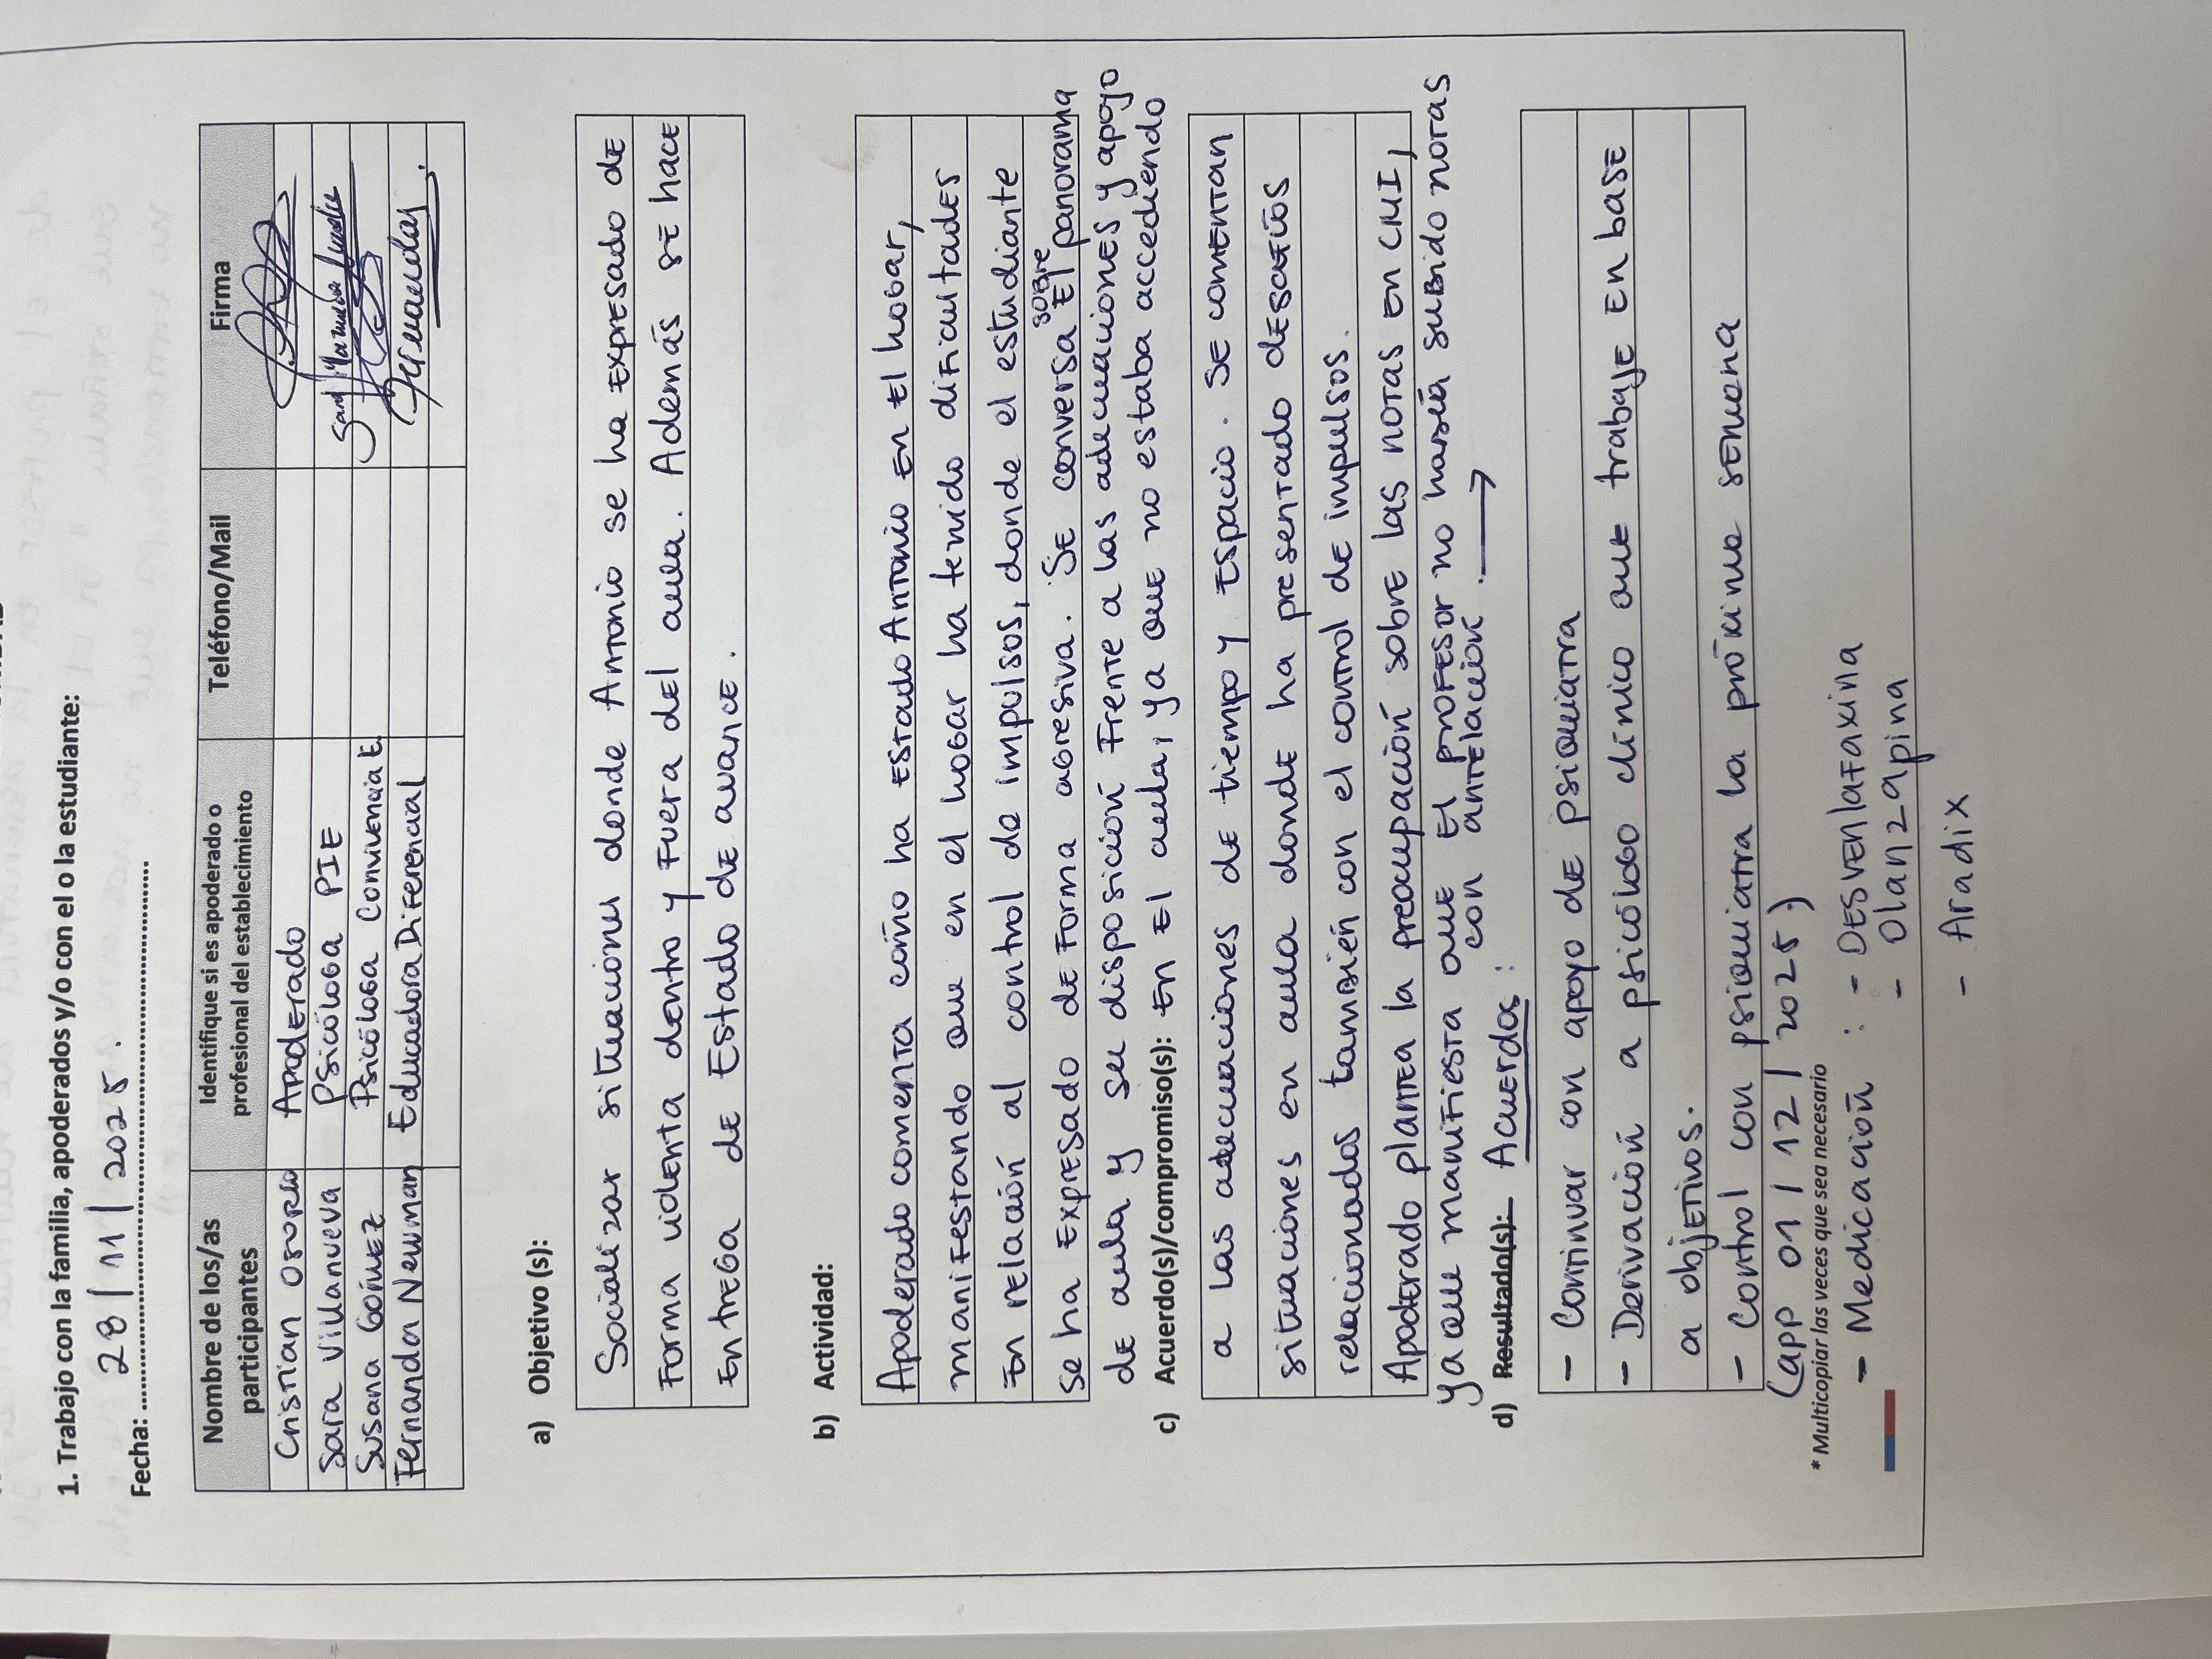 1. Trabajo con la familia, apoderados y/o con el o la estudiante:
Fecha: 28 / 11 / 2025.
Nombre de los/as participantes | Identifique si es apoderado o profesional del establecimiento | Teléfono/Mail | Firma
Cristian Osorio | Apoderado
Sara Villanueva | Psicóloga PIE
Susana Gómez | Psicóloga Convivencia E.
Fernanda Newman | Educadora Diferencial
a) Objetivo (s):
Socializar situaciones donde Antonio se ha expresado de
forma violenta dentro y fuera del aula. Además se hace
entrega de Estado de avance.
b) Actividad:
Apoderado comenta cómo ha estado Antonio en el hogar,
manifestando que en el hogar ha tenido dificultades
en relación al control de impulsos, donde el estudiante
se ha expresado de forma agresiva. Se conversa sobre el panorama
de aula y su disposición frente a las adecuaciones y apoyo
c) Acuerdo(s)/compromiso(s): en el aula, ya que no estaba accediendo
a las adecuaciones de tiempo y espacio. Se comentan
situaciones en aula donde ha presentado desafíos
relacionados también con el control de impulsos.
Apoderado plantea la preocupación sobre las notas en CMI,
ya que manifiesta que el profesor no había subido notas
con antelación. →
d) Resultado(s): Acuerdos:
- Continuar con apoyo de psiquiatra
- Derivación a psicólogo clínico que trabaje en base
a objetivos.
- Control con psiquiatra la próxima semana
(app 01 / 12 / 2025)
* Multicopiar las veces que sea necesario
- Medicación : - Desvenlafaxina
- Olanzapina
- Aradix